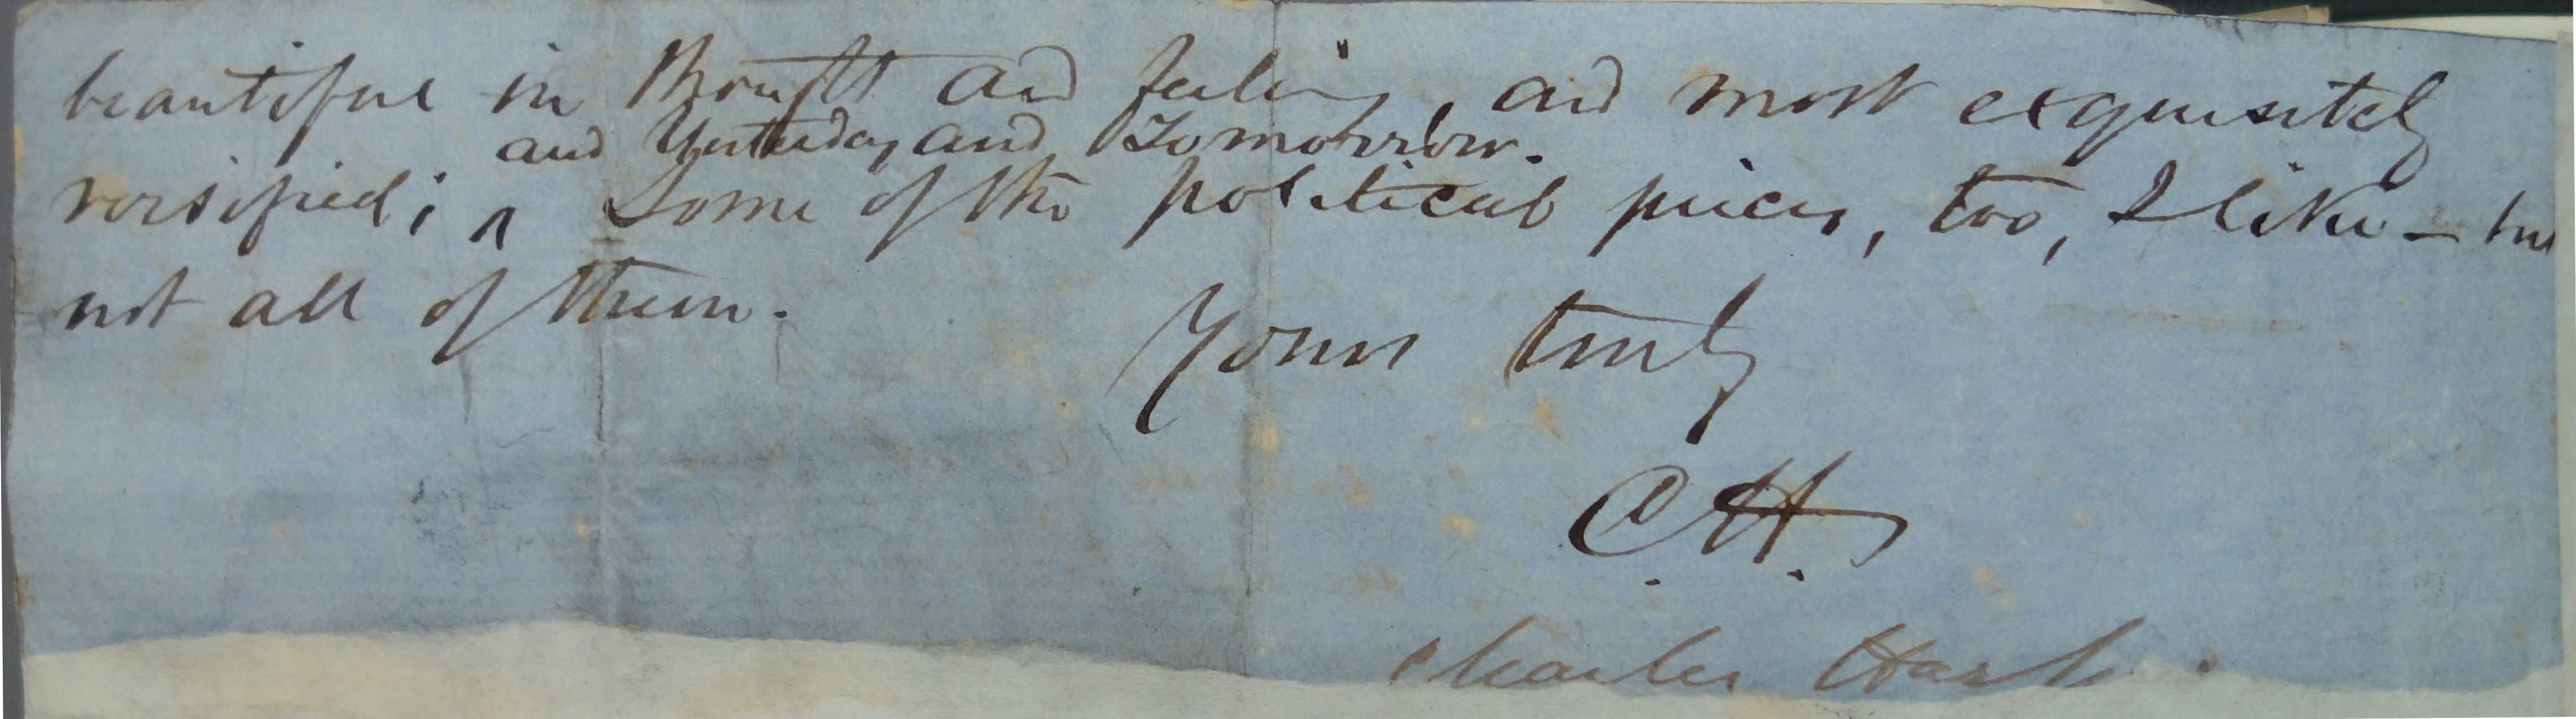 beautiful in thought and feeling, and most exquisitely
and Yesterday and Tomorrow.
versified; ^ Some of the political pieces, too, I like – but
not all of them.
Yours truly
C.H.
Charles